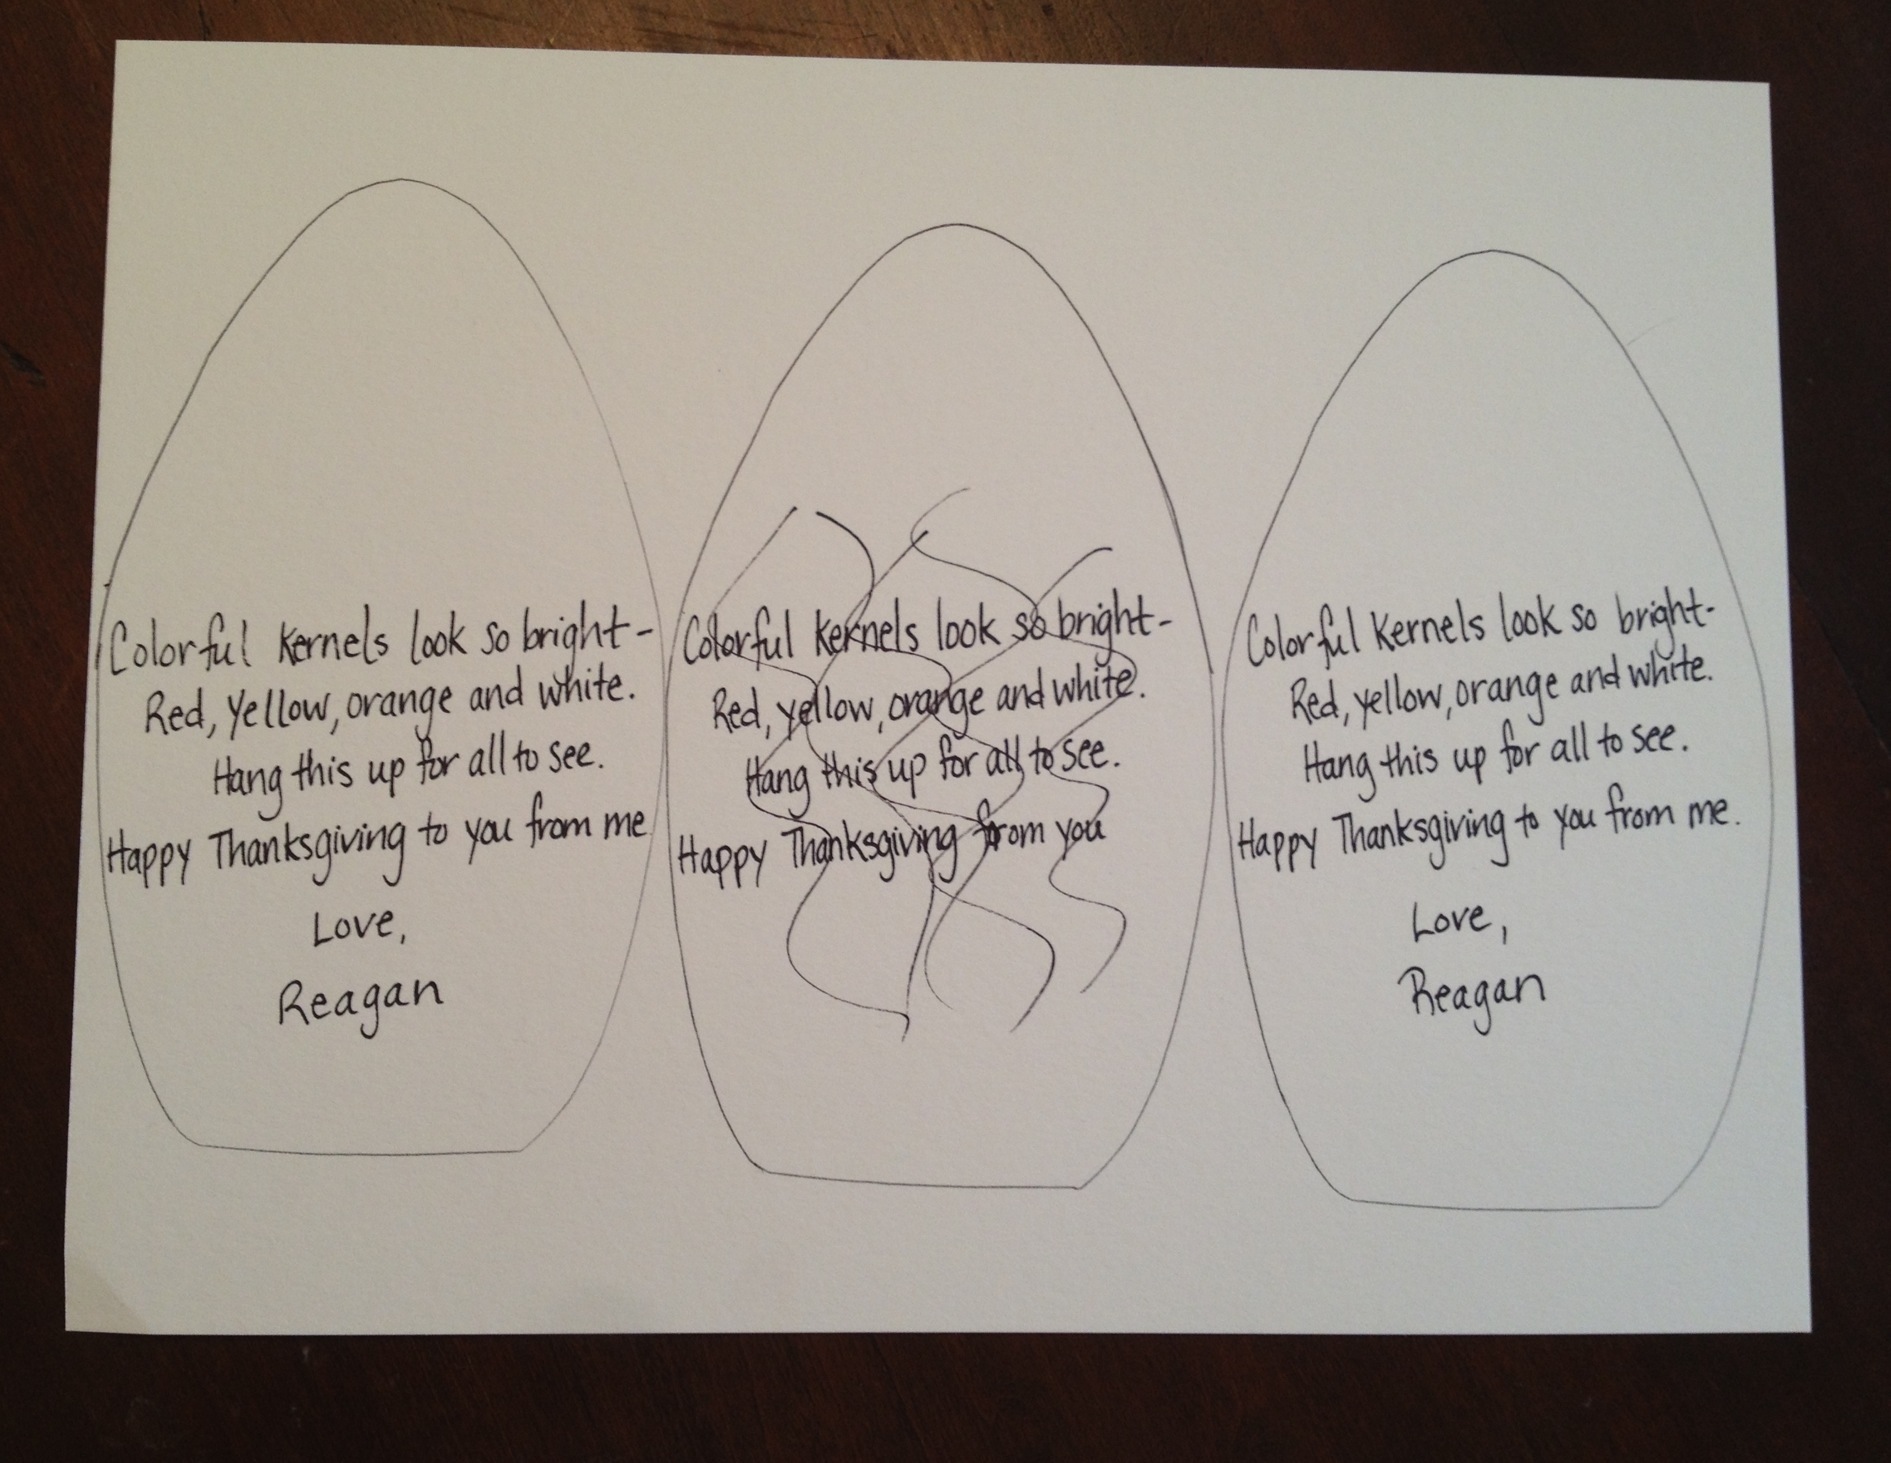 Colorful Kernels look so bright-
Red, yellow, orange and white.
Hang this up for all to see.
Happy Thanksgiving to you from me
Love,
Reagan
Colorful Kernels look so bright-
Red, yellow, orange and white.
Hang this up for all to see.
Happy Thanksgiving from you
Colorful Kernels look so bright-
Red, yellow, orange and white.
Hang this up for all to see.
Happy Thanksgiving to you from me.
Love,
Reagan